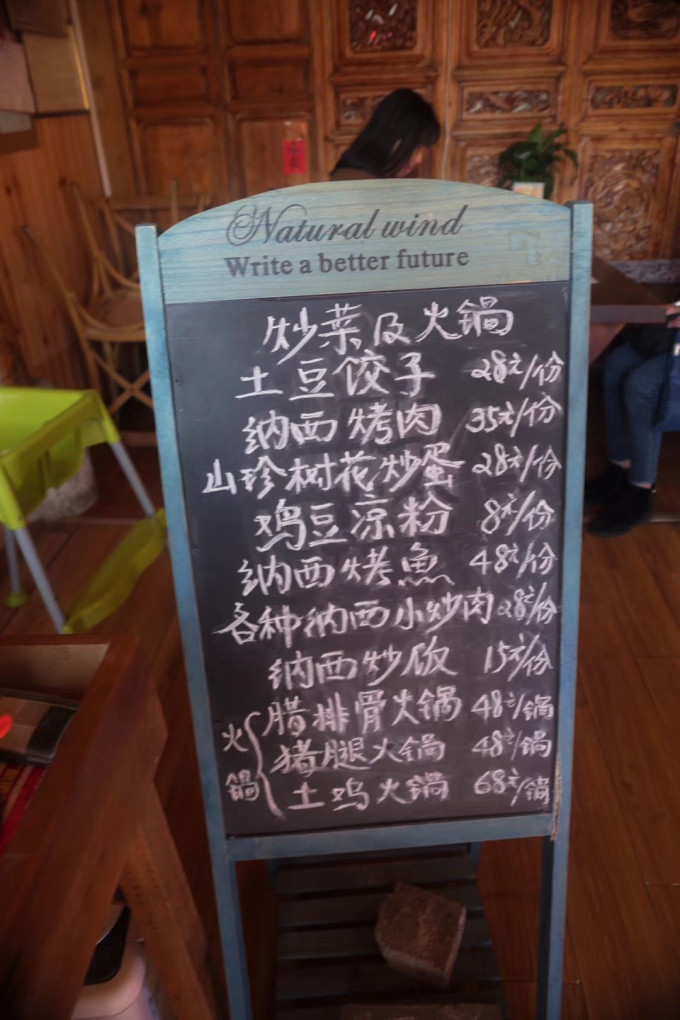 Natural wind
Write a better future
炒菜及火锅
土豆饺子 28元/份
纳西烤肉 35元/份
山珍树花炒蛋 28元/份
鸡豆凉粉 8元/份
纳西烤魚 48元/份
各种纳西小炒肉 28元/份
纳西炒饭 15元/份
火锅
腊排骨火锅 48元/锅
猪腿火锅 48元/锅
土鸡火锅 68元/锅